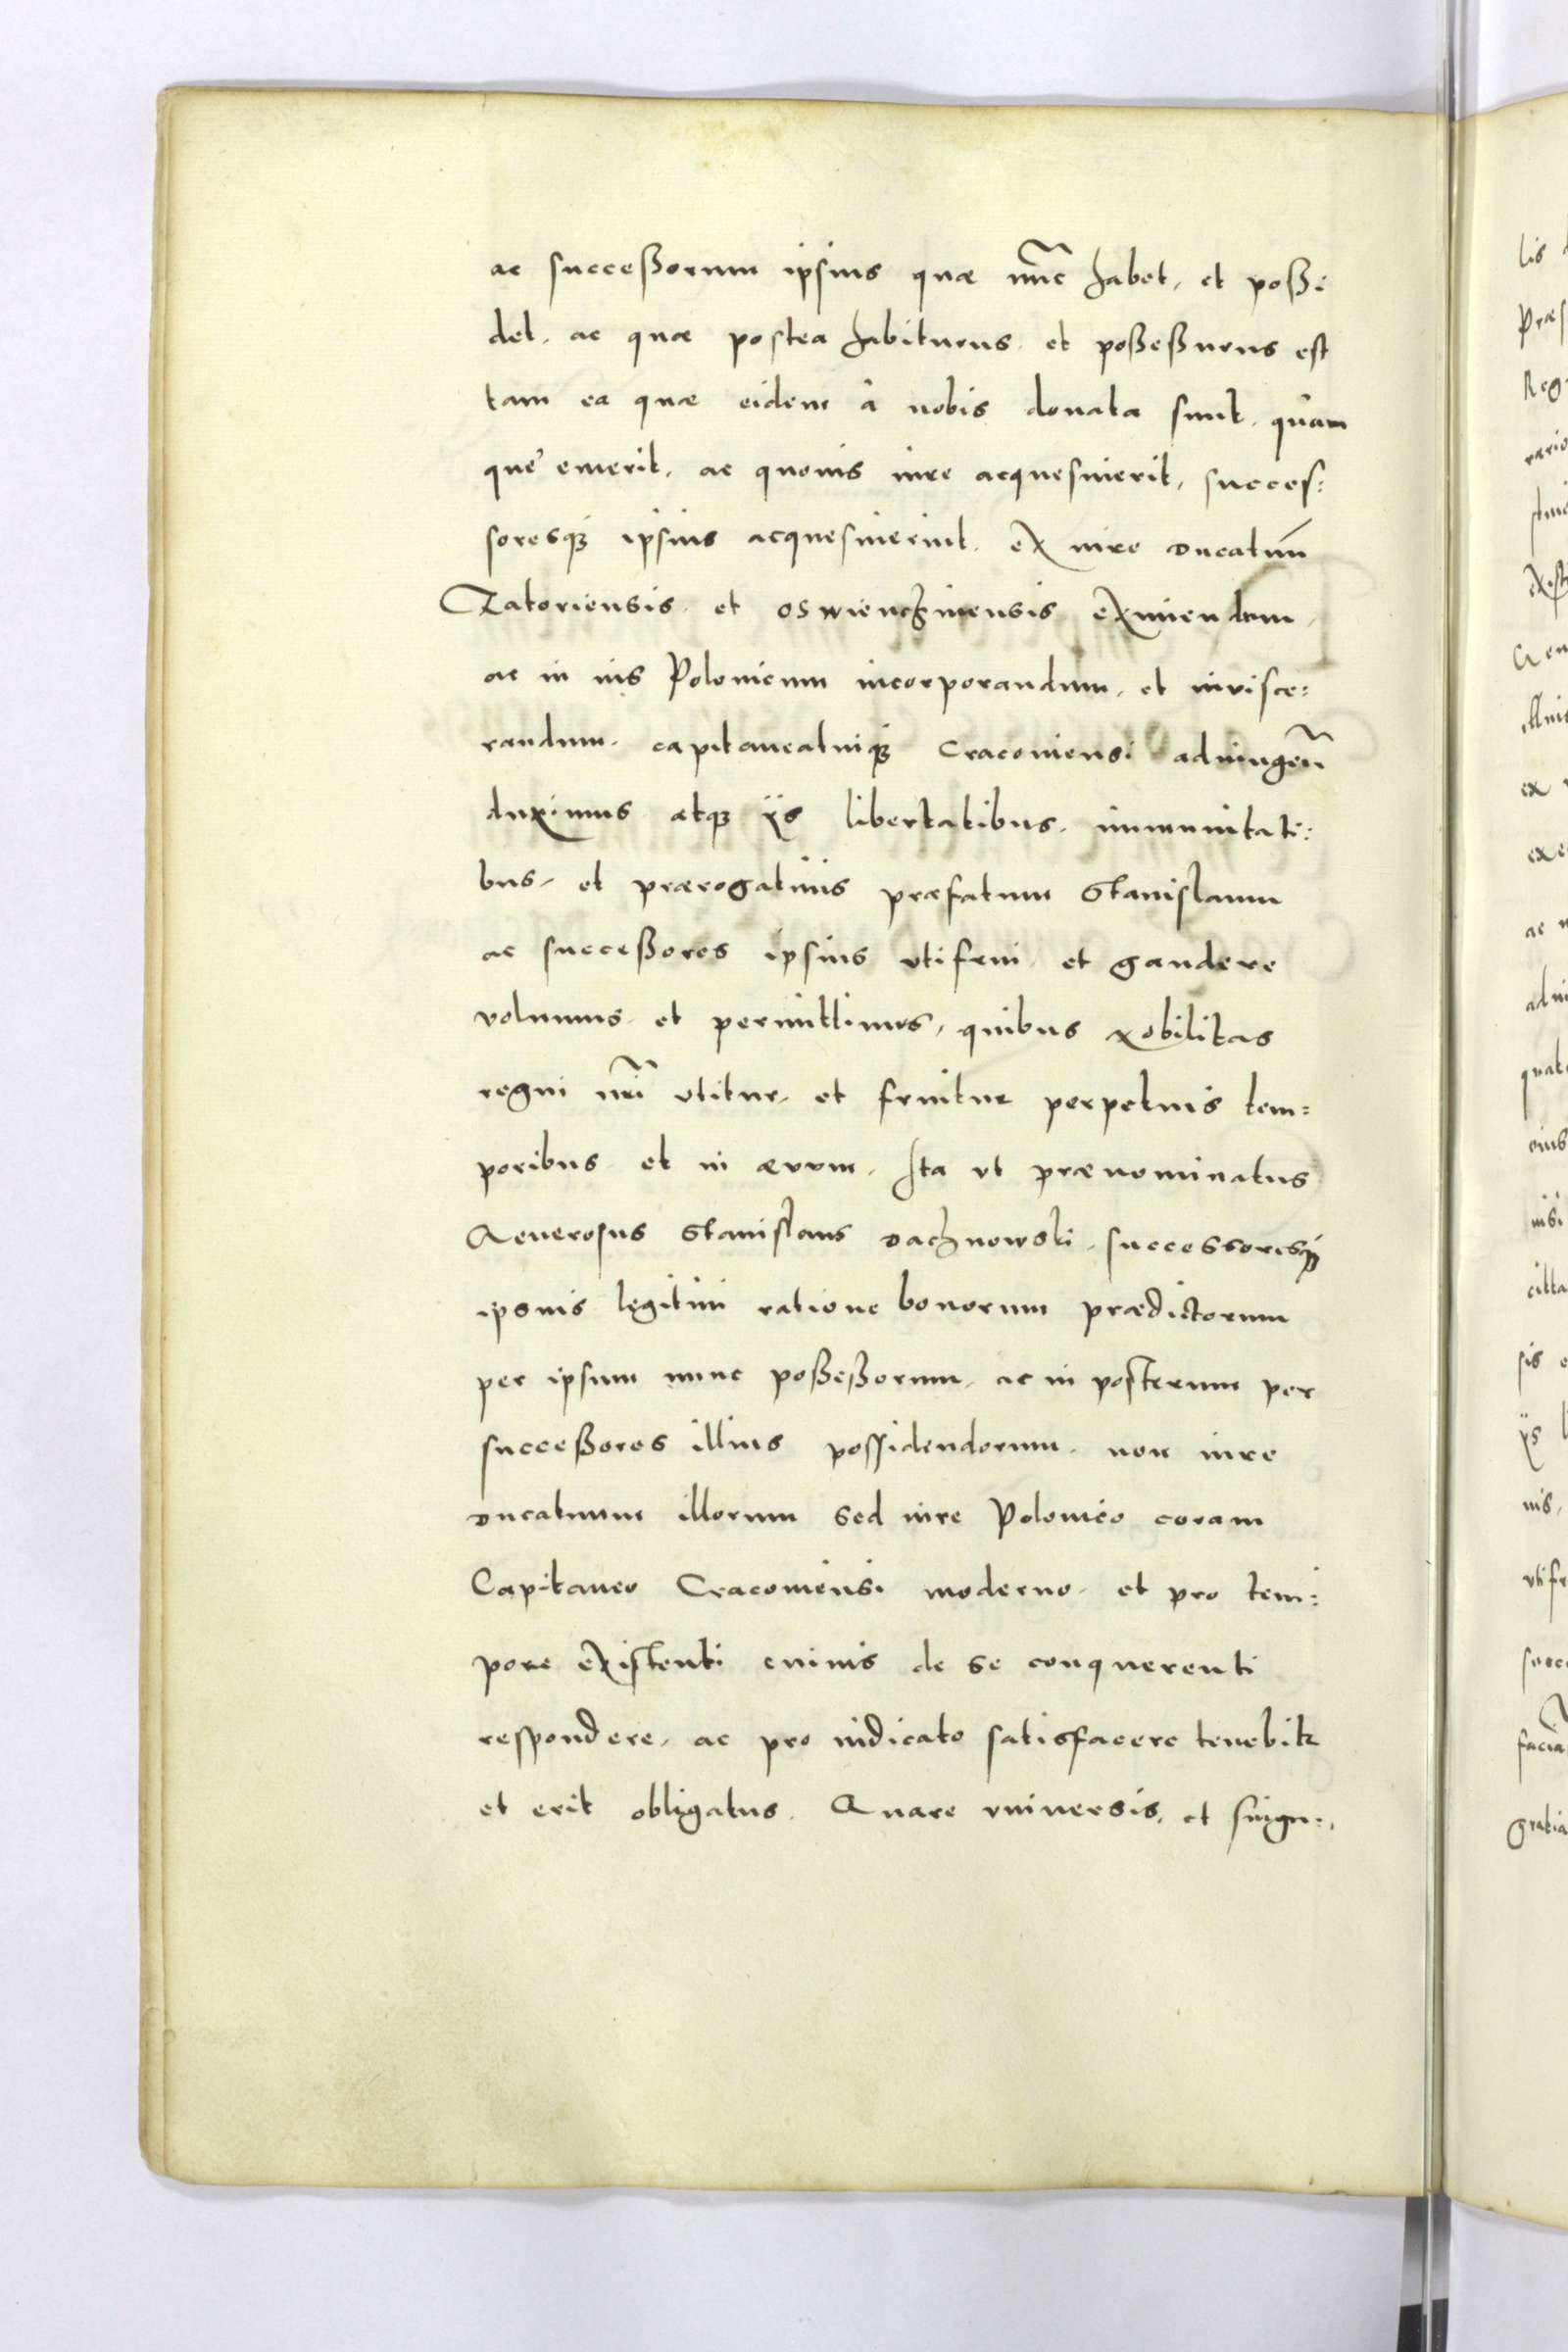 ac succeßorum ipsius quæ nũc habet, et poßi
det, ac quæ postea habiturus, et poßeßurus est
tam ea quæ eidem â nobis donata sunt, quàm
quę emerit, ac quouis iure acquesiuerit, succes:
soresq3 ipsius acquesiuerint, ex iure Ducatuū
Zatoriensis, et Oswienczimensis eximendum,
ac in ius Polonicum incorporandum, et inuisce:
randum, capitaneatuiq3 Cracouiensi adiungeñ
duximus atq3 ijs libertatibus, immunitati:
bus, et prærogatiuis præfatum Stanislaum
ac succeßores ipsius vtifrui, et gaudere
volumus, et permittimus, quibus Nobilitas
regni nr̃i vtitur, et fruitur perpetuis tem:
poribus et in ævvm, Ita vt prænominatus
Generosus Stanislaus Dachnowski, successoresq3
ipsius legitimi ratione bonorum prædictorum
per ipsum nunc poßeßorum, ac in posterum per
succeßores illius possidendorum, non iure
Ducatuum illorum sed iure Polonico coram
Capitaneo Cracouiensi moderno, et pro tem:
pore existenti cuiuis de se conquerenti
respondere, ac pro iudicato satisfacere tenebit᷑
et erit obligatus. Quare vniuersis, et singu:,
lis
Præs
Reg
ex
ijs
vtifr
gratia